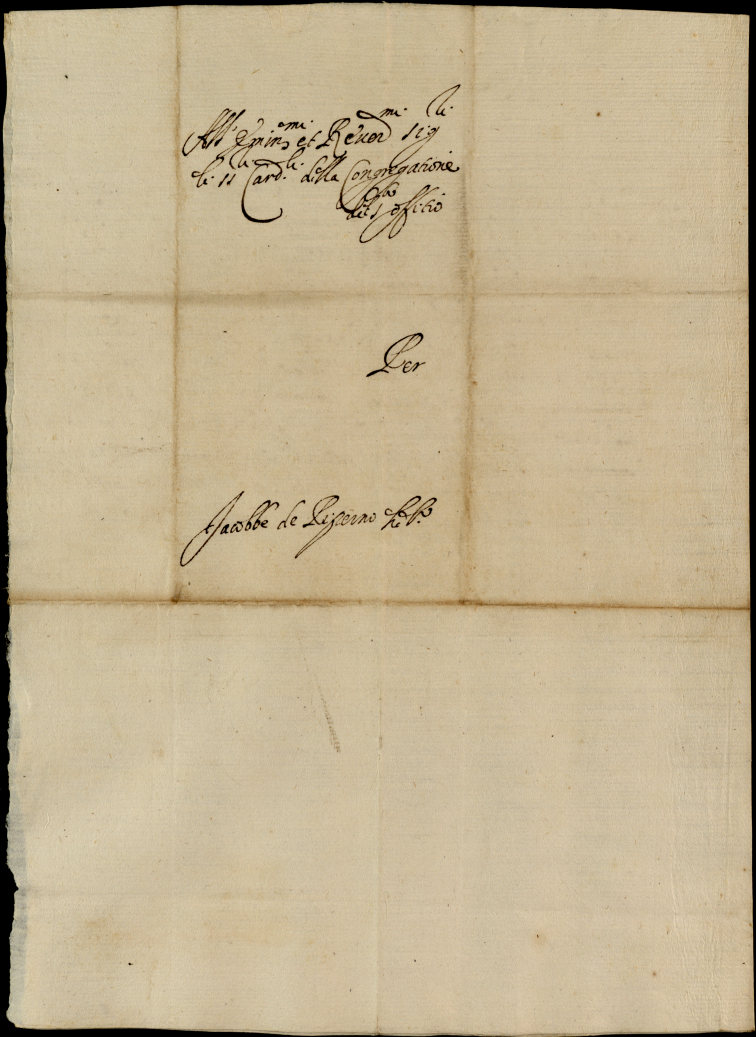 All' Emin.mi et Reuer.mi sig.ri
li ss.ri Card.li della Congregatione
del s.to offitio
Per
Jacobbe de Piperno heb.o